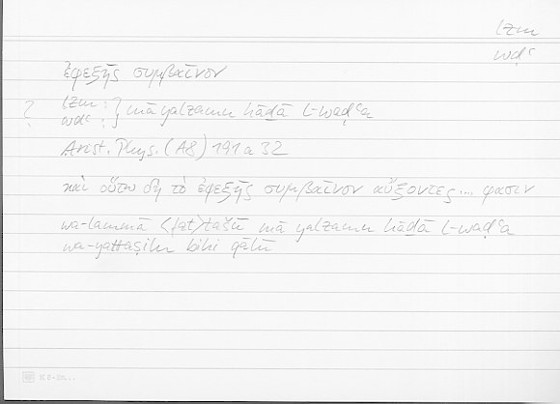 lzm
wḍʿ
ἐφεξῆς συμβαῖνον
? lzm : } mā yalzamu hāḏā l-waḍʿa
wḍʿ : }
Arist. Phys. (A8) 191 a 32
καὶ οὕτω δὴ τὸ ἐφεξῆς συμβαῖνον αὔξοντες... φασιν
wa-lammā mā yalzamu hāḏā l-waḍʿa
wa-yattaṣilu bihi qālū